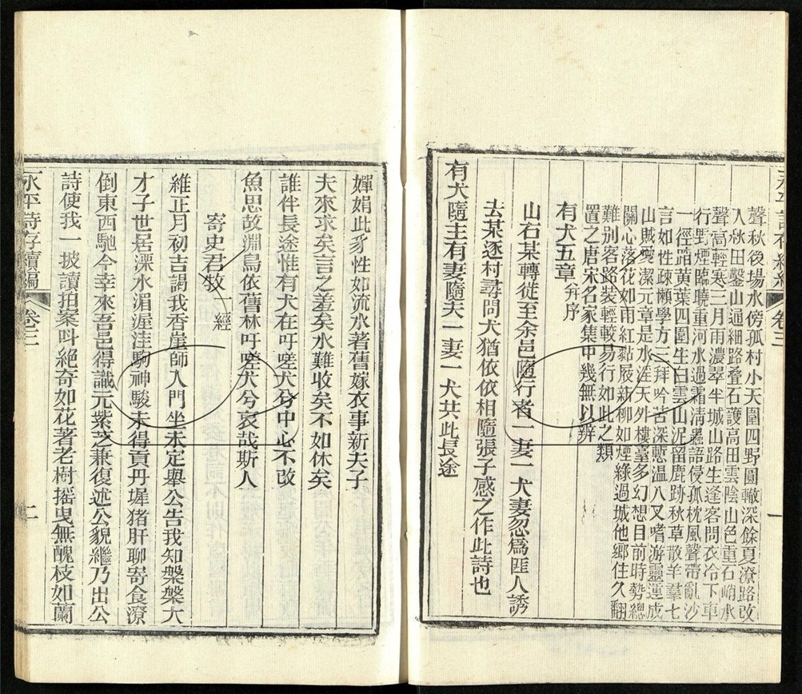 聲秋後場水傍孤村小天圍四野圓轍深餘夏潦路改
人秋田鑿山通細路疊石護高田雲陰山色重石峭水
聲高輕寒三月雨濃翠半城山路生逢客問衣冷下車
行野煙臨曉重河水過霜清墨語侵孤枕風聲帶亂沙
一徑踏黃葉四圍生白雲山泥留鹿跡秋草散羊羣七
言如性疎懶學方三拜吟苦深慙溫八叉嗜游靈運成
山賊愛潔元章是水淫天外樓臺多幻想目前時勢總
關心落花如雨紅黏屐新柳如煙綠過城他鄉住久翻
難別客路裝輕較易行如此之類
置之唐宋名家集中幾無以辨
有犬五章并序
山右某轉徙至余邑隨行者一妻一犬妻忽為匪人誘
去某逐村尋問犬猶依依相隨張子感之作此詩也
有犬隨主有妻隨夫一妻一犬共此長途
永平詩存續編 卷三 一
嬋娟此豸性如流水著舊嫁衣事新夫子
夫來求矣言之羞矣水難收矣不如休矣
誰伴長途惟有犬在吁嗟犬兮中心不改
魚思故淵鳥依舊林吁嗟犬兮哀哉斯人
寄史君牧一經
維正月初吉謁我香崖師入門坐未定舉公告我知槃槃大
才子世居溧水湄渥洼駒神駿未得貢丹墀豬肝聊寄食潦
倒東西馳今幸來吾邑得識元紫芝兼復述公貌繼乃出公
詩使我一披讀拍案叫絕奇如花著老樹搖曳無醜枝如蘭
永平詩存續編 卷三 二